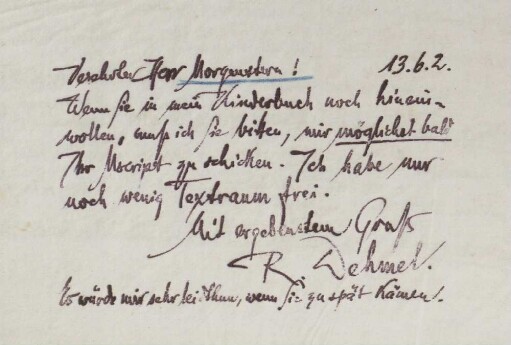 Verehrter Herr Morgenstern! 13.6.2.
Wenn Sie in mein Kinderbuch noch hinein-
wollen, muß ich Sie bitten, mir möglichst bald
Ihr Mscript zu schicken. Ich habe nur
noch wenig Textraum frei.
Mit ergebenstem Gruß
R. Dehmel.
Es würde mir sehr leid thun, wenn Sie zu spät kämen.